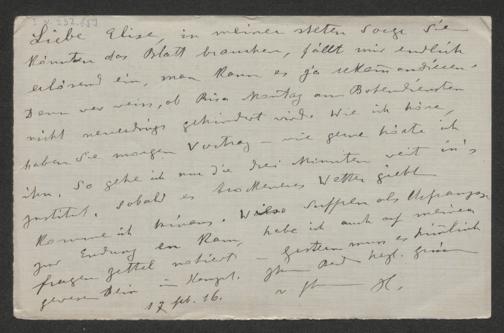 I.N. 232.
Liebe Elise, in meiner steten Sorge Sie
könnten das Blatt brauchen, fällt mir endlich
erlösend ein, man kann es ja rekomandieren.
Denn wer weiss, ob Risa Montag am Botendiensten
nicht neuerdings gehindert wird. Wie ich höre,
haben Sie morgen Vortrag – wie gerne hörte ich
ihn. So gehe ich nur die drei Minuten weit in's
Institut. Sobald es trockeneres Wetter giebt
komme ich hinaus. Suffix als
zur Endung en kam, habe ich auch auf meinen
fragen zettel notiert – Gestern muss es
gewesen sein
17 16. H.